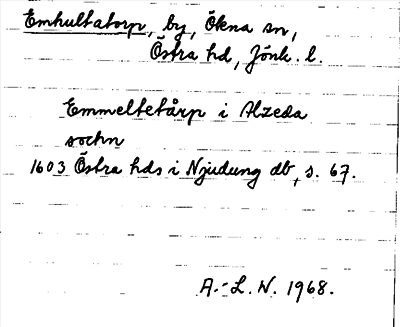 Emhultatorp, by, Ökna sn,
Östra hd, Jönk. l.
Emmeltetårp i Alzeda
sochn
1603 Östra hds i Njudung db, s. 67.
A.-L. W. 1968.